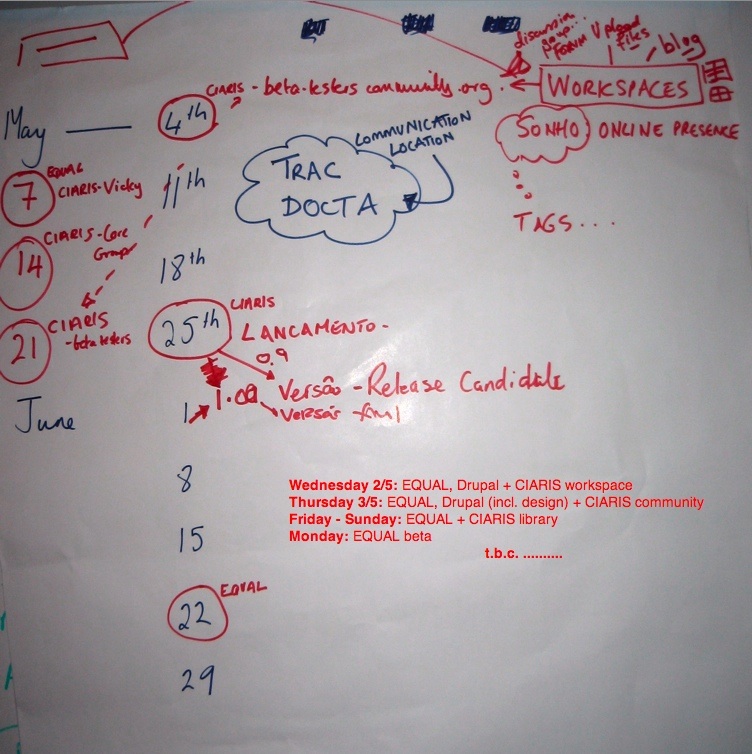 discussion
group...
FORUM
Upload
files
blog
WORKSPACES
CIARIS - beta-testers community.org.
May
4th
SONHO
ONLINE PRESENCE
TAGS...
COMMUNICATION
LOCATION
TRAC
DOCTA
7
EQUAL
CIARIS-Vicky
11th
14
CIARIS-Core
Group
18th
21
CIARIS
-beta testers
25th
CIARIS
LANCAMENTO-
0.9
Versão - Release Candidate
June
1
1.00
Versão final
8
Wednesday 2/5: EQUAL, Drupal + CIARIS workspace
Thursday 3/5: EQUAL, Drupal (incl. design) + CIARIS community
Friday - Sunday: EQUAL + CIARIS library
Monday: EQUAL beta
t.b.c. ..........
15
22
EQUAL
29